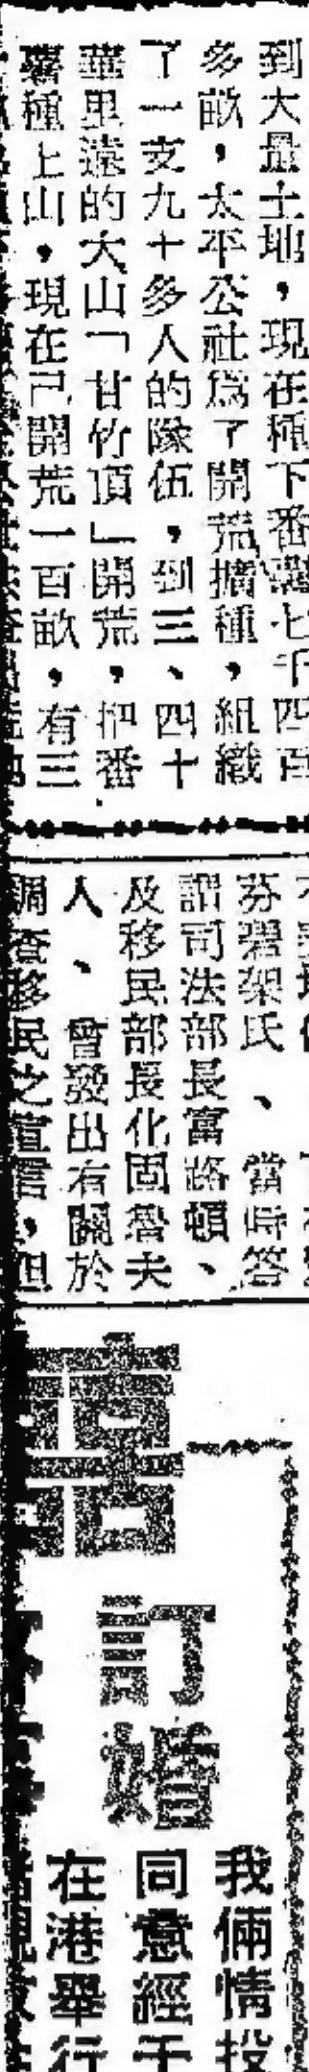 到大量土地，現在種下番薯七千四百
多畝，太平公社爲了開荒擴種，組織
了一支九十多人的隊伍，到三、四十
華里遠的大山「甘竹頂」開荒，把番
薯種上山，現在已開荒一百畝，有三
芬碧架氏、當時答
謂司法部長富路頓、
及移民部長化固魯夫
人、曾發出有關於
調查移民之宣言，但
囍
訂婚
我倆情投
同意經于
在港舉行